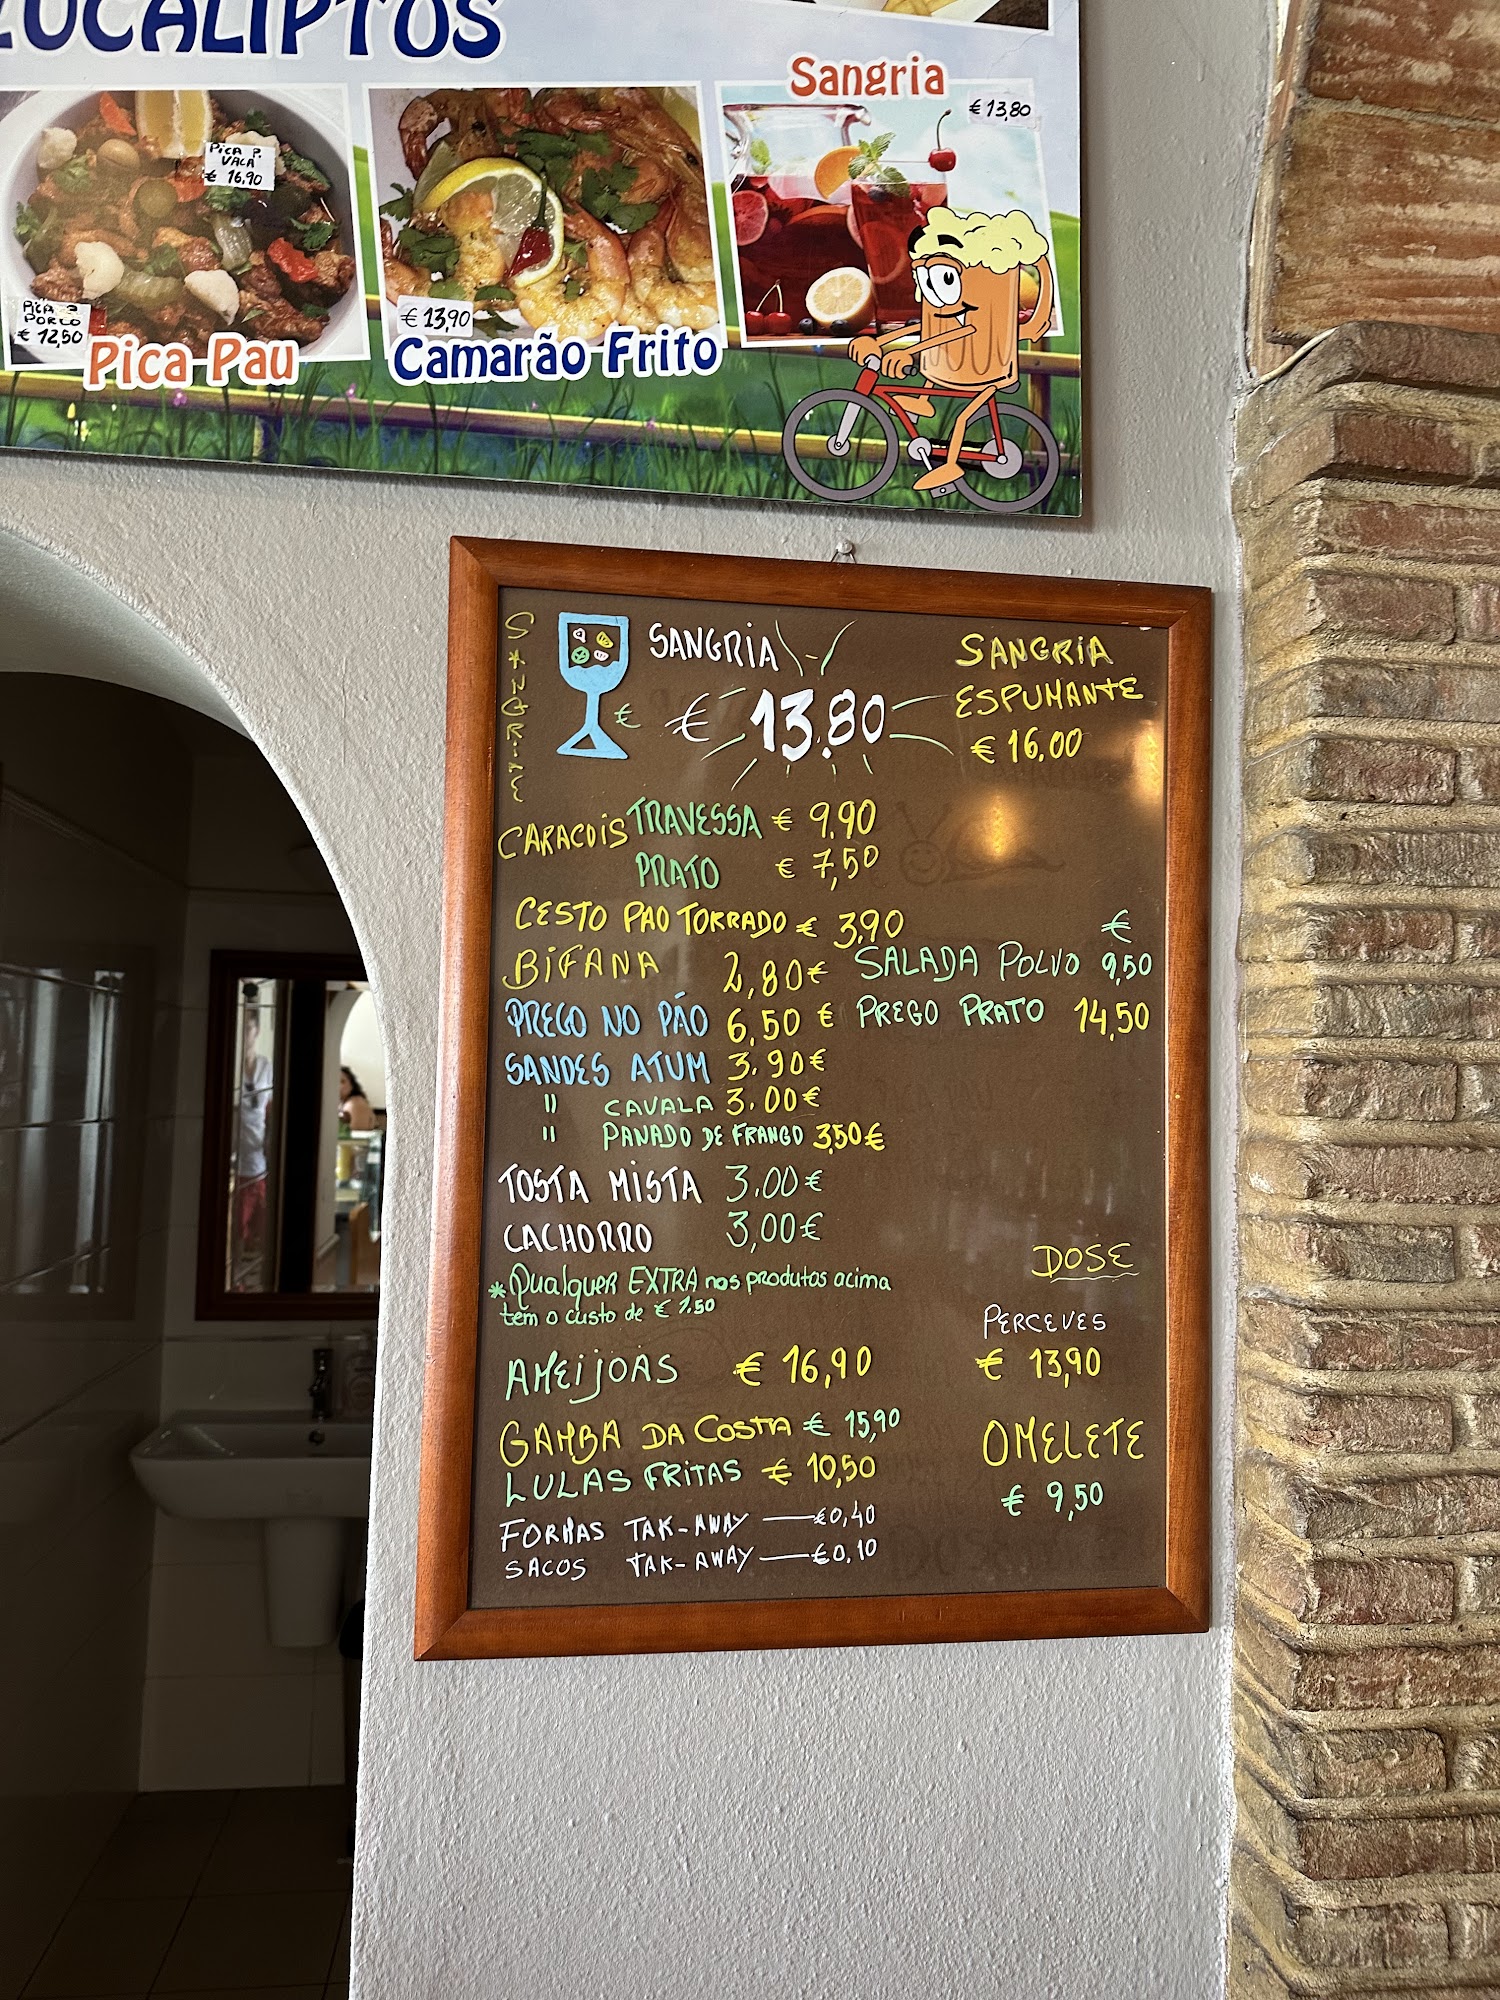 EUCALIPTOS
Sangria
€ 13,80
PICA P.
VACA
€ 16,90
PICA P
PORCO
€ 12,50
Pica Pau
€ 13,90
Camarão Frito
SANGRIA
SANGRIA
€
€ 13.80
SANGRIA
ESPUMANTE
€ 16.00
CARACOIS TRAVESSA € 9.90
PRATO € 7,50
CESTO PAO TORRADO € 3.90
BIFANA 2,80€
PREGO NO PÃO 6,50 €
€
SALADA POLVO 9,50
PREGO PRATO 14,50
SANDES ATUM 3.90€
" CAVALA 3.00€
" PANADO DE FRANGO 3,50€
TOSTA MISTA 3.00€
CACHORRO 3,00€
* Qualquer EXTRA nos produtos acima
tem o custo de € 1.50
DOSE
PERCEVES
€ 13,90
AMEIJOAS € 16,90
GAMBA DA COSTA € 15,90
LULAS FRITAS € 10,50
OMELETE
€ 9,50
FORMAS TAK-AWAY — €0,40
SACOS TAK-AWAY — €0.10